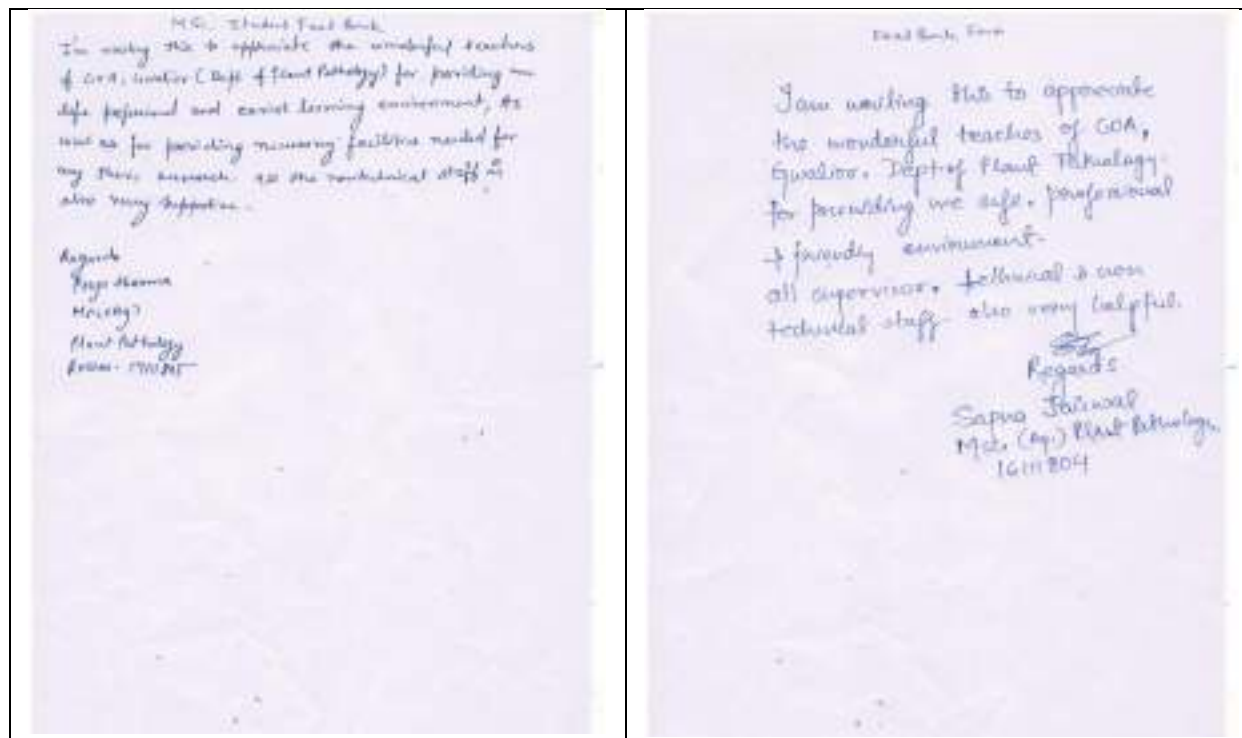 Student Feed Back
I'm writing this to appreciate the wonderful teachers
of COA, Gwalior (Dept. of Plant Pathology) for providing
and learning environment, As
well as for providing necessary facilities needed for
my thesis research. all the nontechnical staff
also very supportive.
Regards
Sharma
Plant Pathology
Feed Back Form
I am writing this to appreciate
the wonderful teaches of COA,
Gwalior. Dept of Plant
for providing me safe, professional
& friendly environment.
all supervisor, technical & non
technical staff also very helpful.
Regards
Sapna Jaiswal
Msc. (Ag.) Plant Pathology
16111804